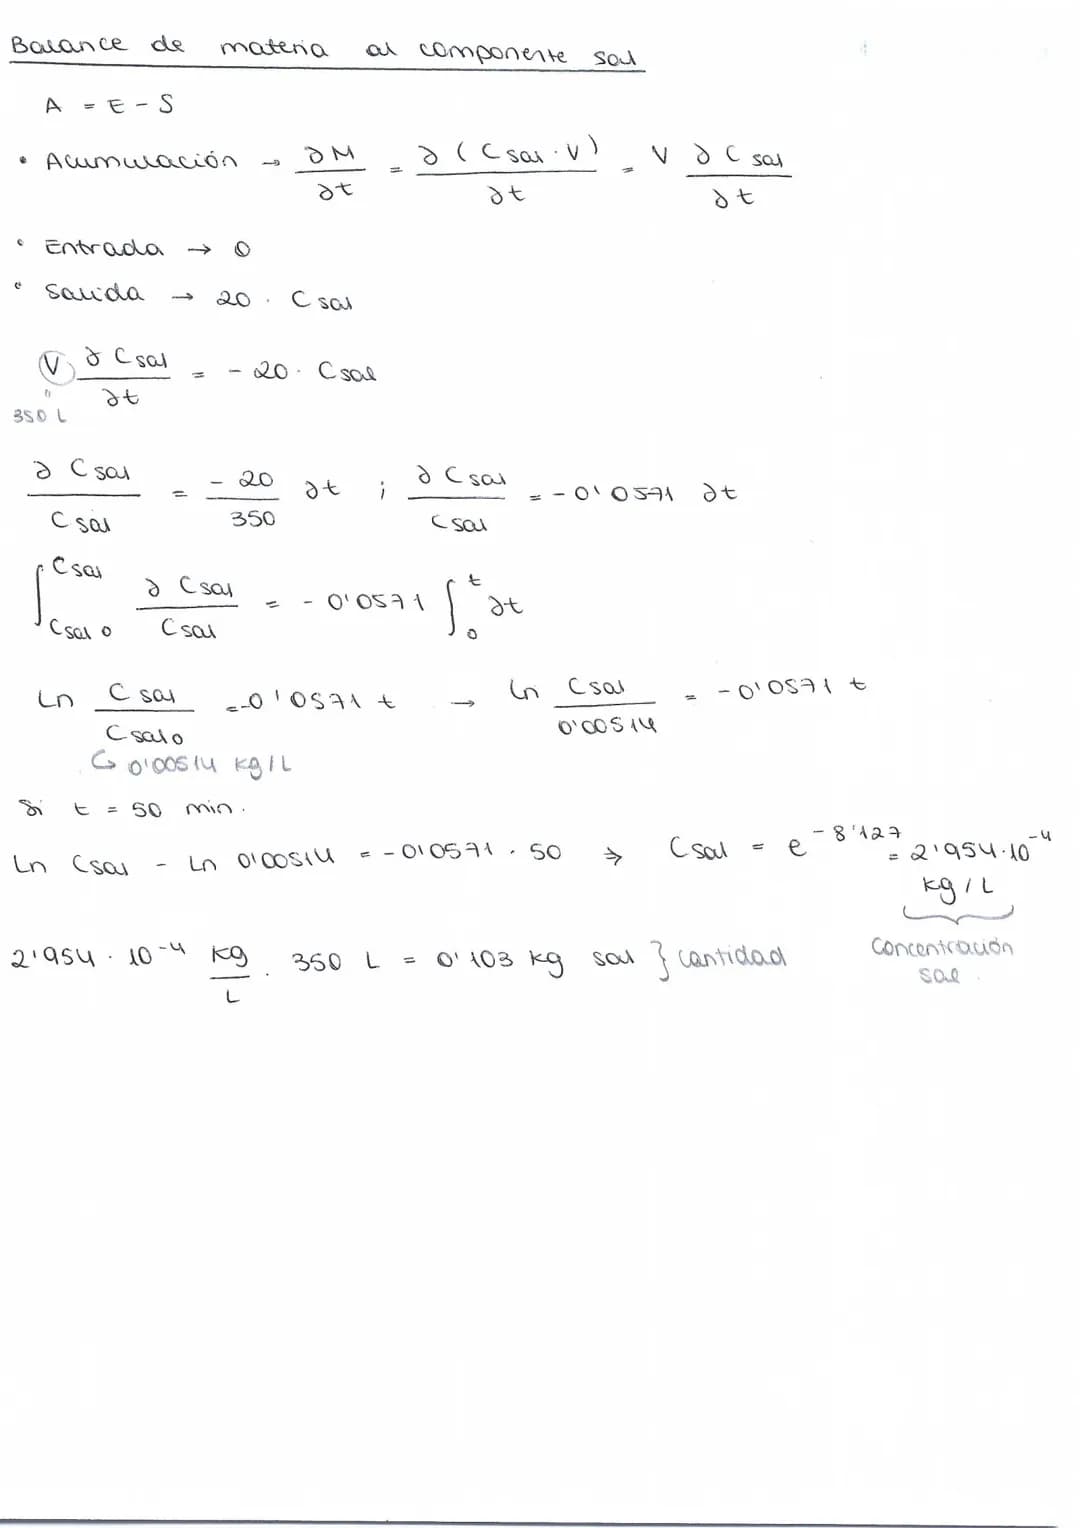 Balance de materia al componente sal
A = E - S
• Acumulación → ∂M/∂t = ∂(Csal · V)/∂t = V ∂Csal/∂t
• Entrada → 0
• Salida → 20 · Csal
V ∂Csal/∂t = - 20 · Csal
" 350 L
∂Csal/Csal = -20/350 ∂t ; ∂Csal/Csal = - 0'0571 ∂t
∫_{Csal0}^{Csal} ∂Csal/Csal = - 0'0571 ∫_0^t ∂t
Ln Csal/Csal0 = -0'0571 t → Ln Csal/0'00514 = - 0'0571 t
↳ 0'00514 kg/L
Si t = 50 min.
Ln Csal - Ln 0'00514 = - 0'0571 · 50 ⇒ Csal = e^{-8'127} = 2'954·10^{-4} kg/L
Concentración sal
2'954 · 10^{-4} kg/L · 350 L = 0'103 kg sal } cantidad